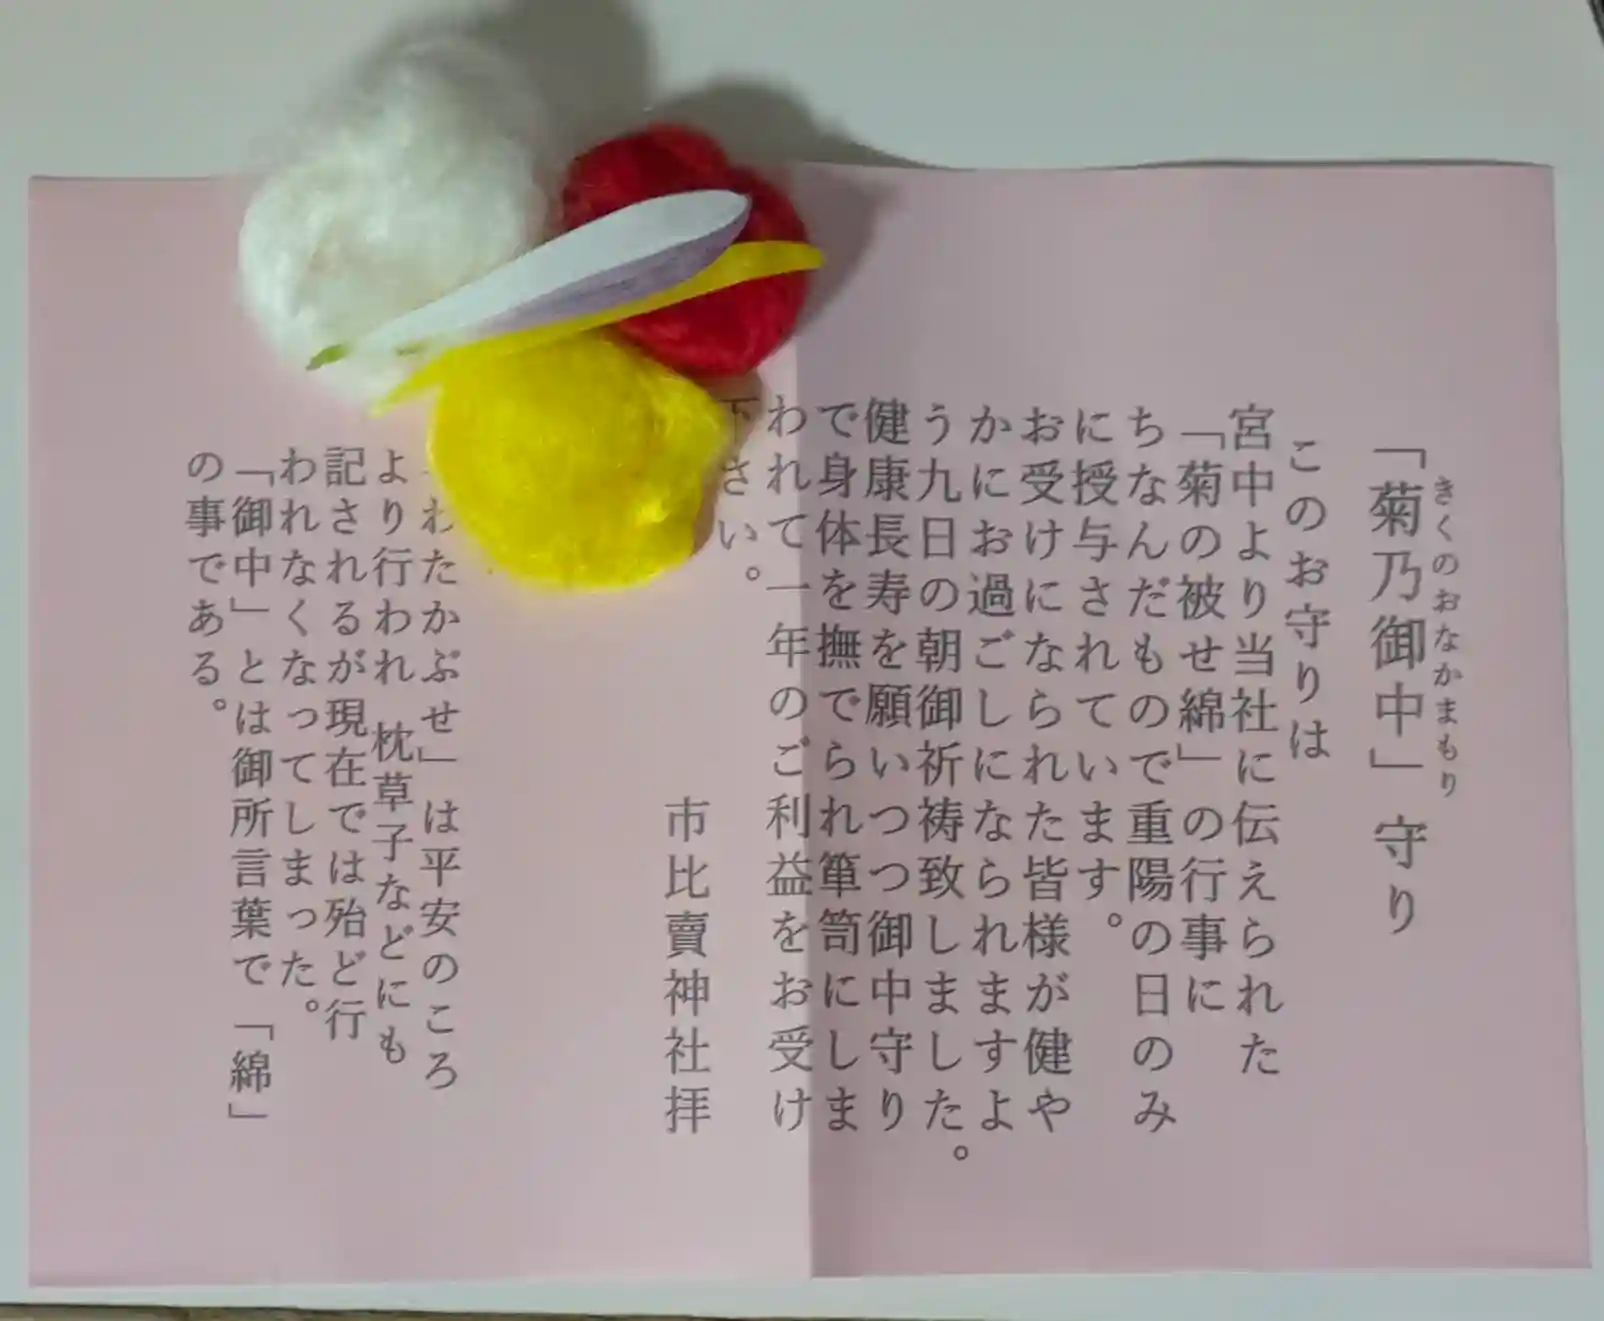 「菊乃御中」守り
きくのおなかまもり
このお守りは
宮中より当社に伝えられた
「菊の被せ綿」の行事に
ちなんだもので重陽の日のみ
に授与されています。
お受けになられた皆様が健や
かにお過ごしになられますよ
う九日の朝御祈祷致しました。
健康長寿を願いつつ御中守り
で身体を撫でられ箪笥にしま
われて一年のご利益をお受け
下さい。
市比賣神社拝
わたかぶせ」は平安のころ
より行われ 枕草子などにも
記されるが現在では殆ど行
われなくなってしまった。
「御中」とは御所言葉で「綿」
の事である。